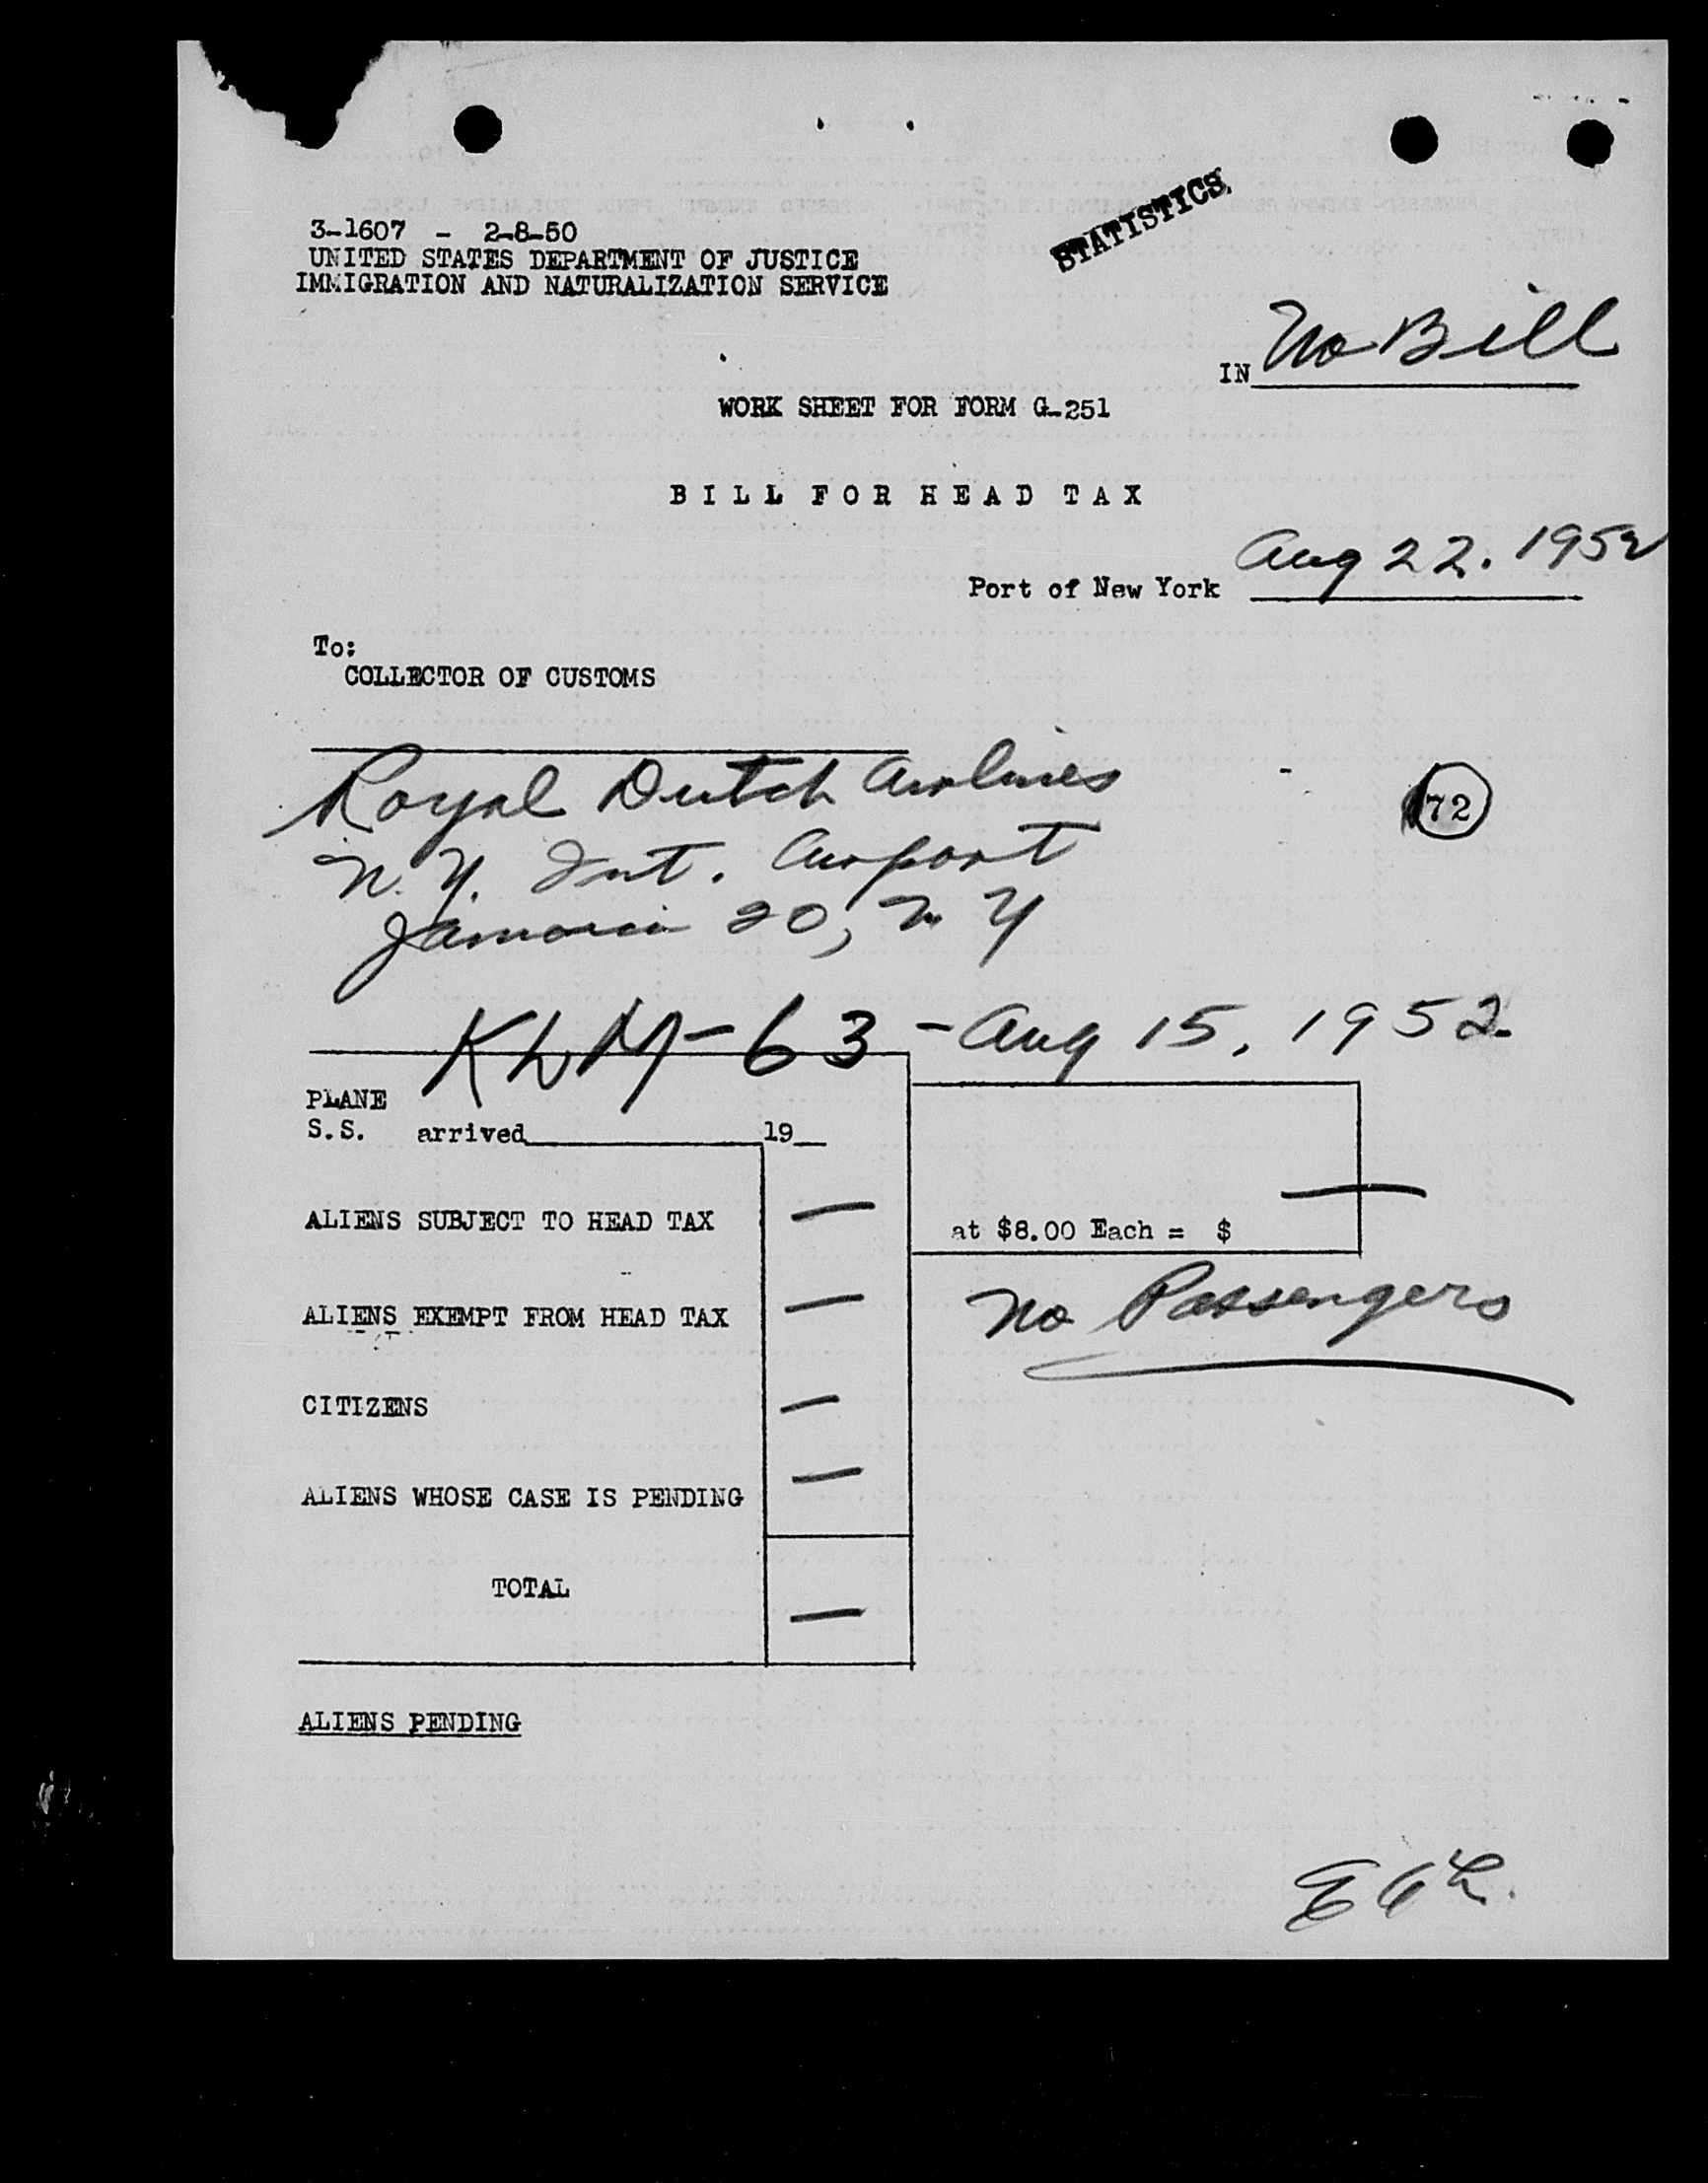 STATISTICS
3-1607 - 2-8-50
UNITED STATES DEPARTMENT OF JUSTICE
IMMIGRATION AND NATURALIZATION SERVICE
IN No Bill
WORK SHEET FOR FORM G-251
BILL FOR HEAD TAX
Port of New York Aug 22. 1952
To:
COLLECTOR OF CUSTOMS
Royal Dutch Airlines
72
N.Y. Int. Airport
Jamaica 20, N Y
KLM-63 - Aug 15, 1952
PLANE
S.S. arrived 19
ALIENS SUBJECT TO HEAD TAX —
at $8.00 Each = $ —
ALIENS EXEMPT FROM HEAD TAX —
No Passengers
CITIZENS —
ALIENS WHOSE CASE IS PENDING —
TOTAL —
ALIENS PENDING